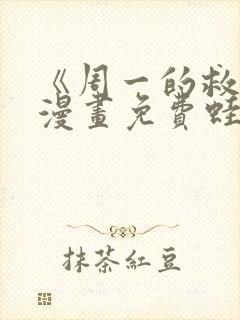 《周一的救
漫畫免費蛙
抹茶紅豆